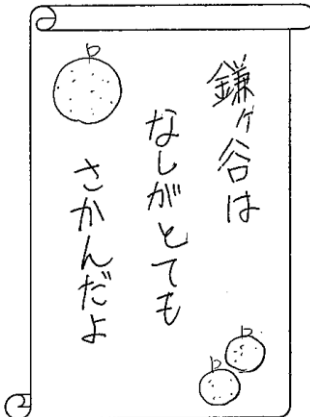 鎌ケ谷は
なしがとても
さかんだよ